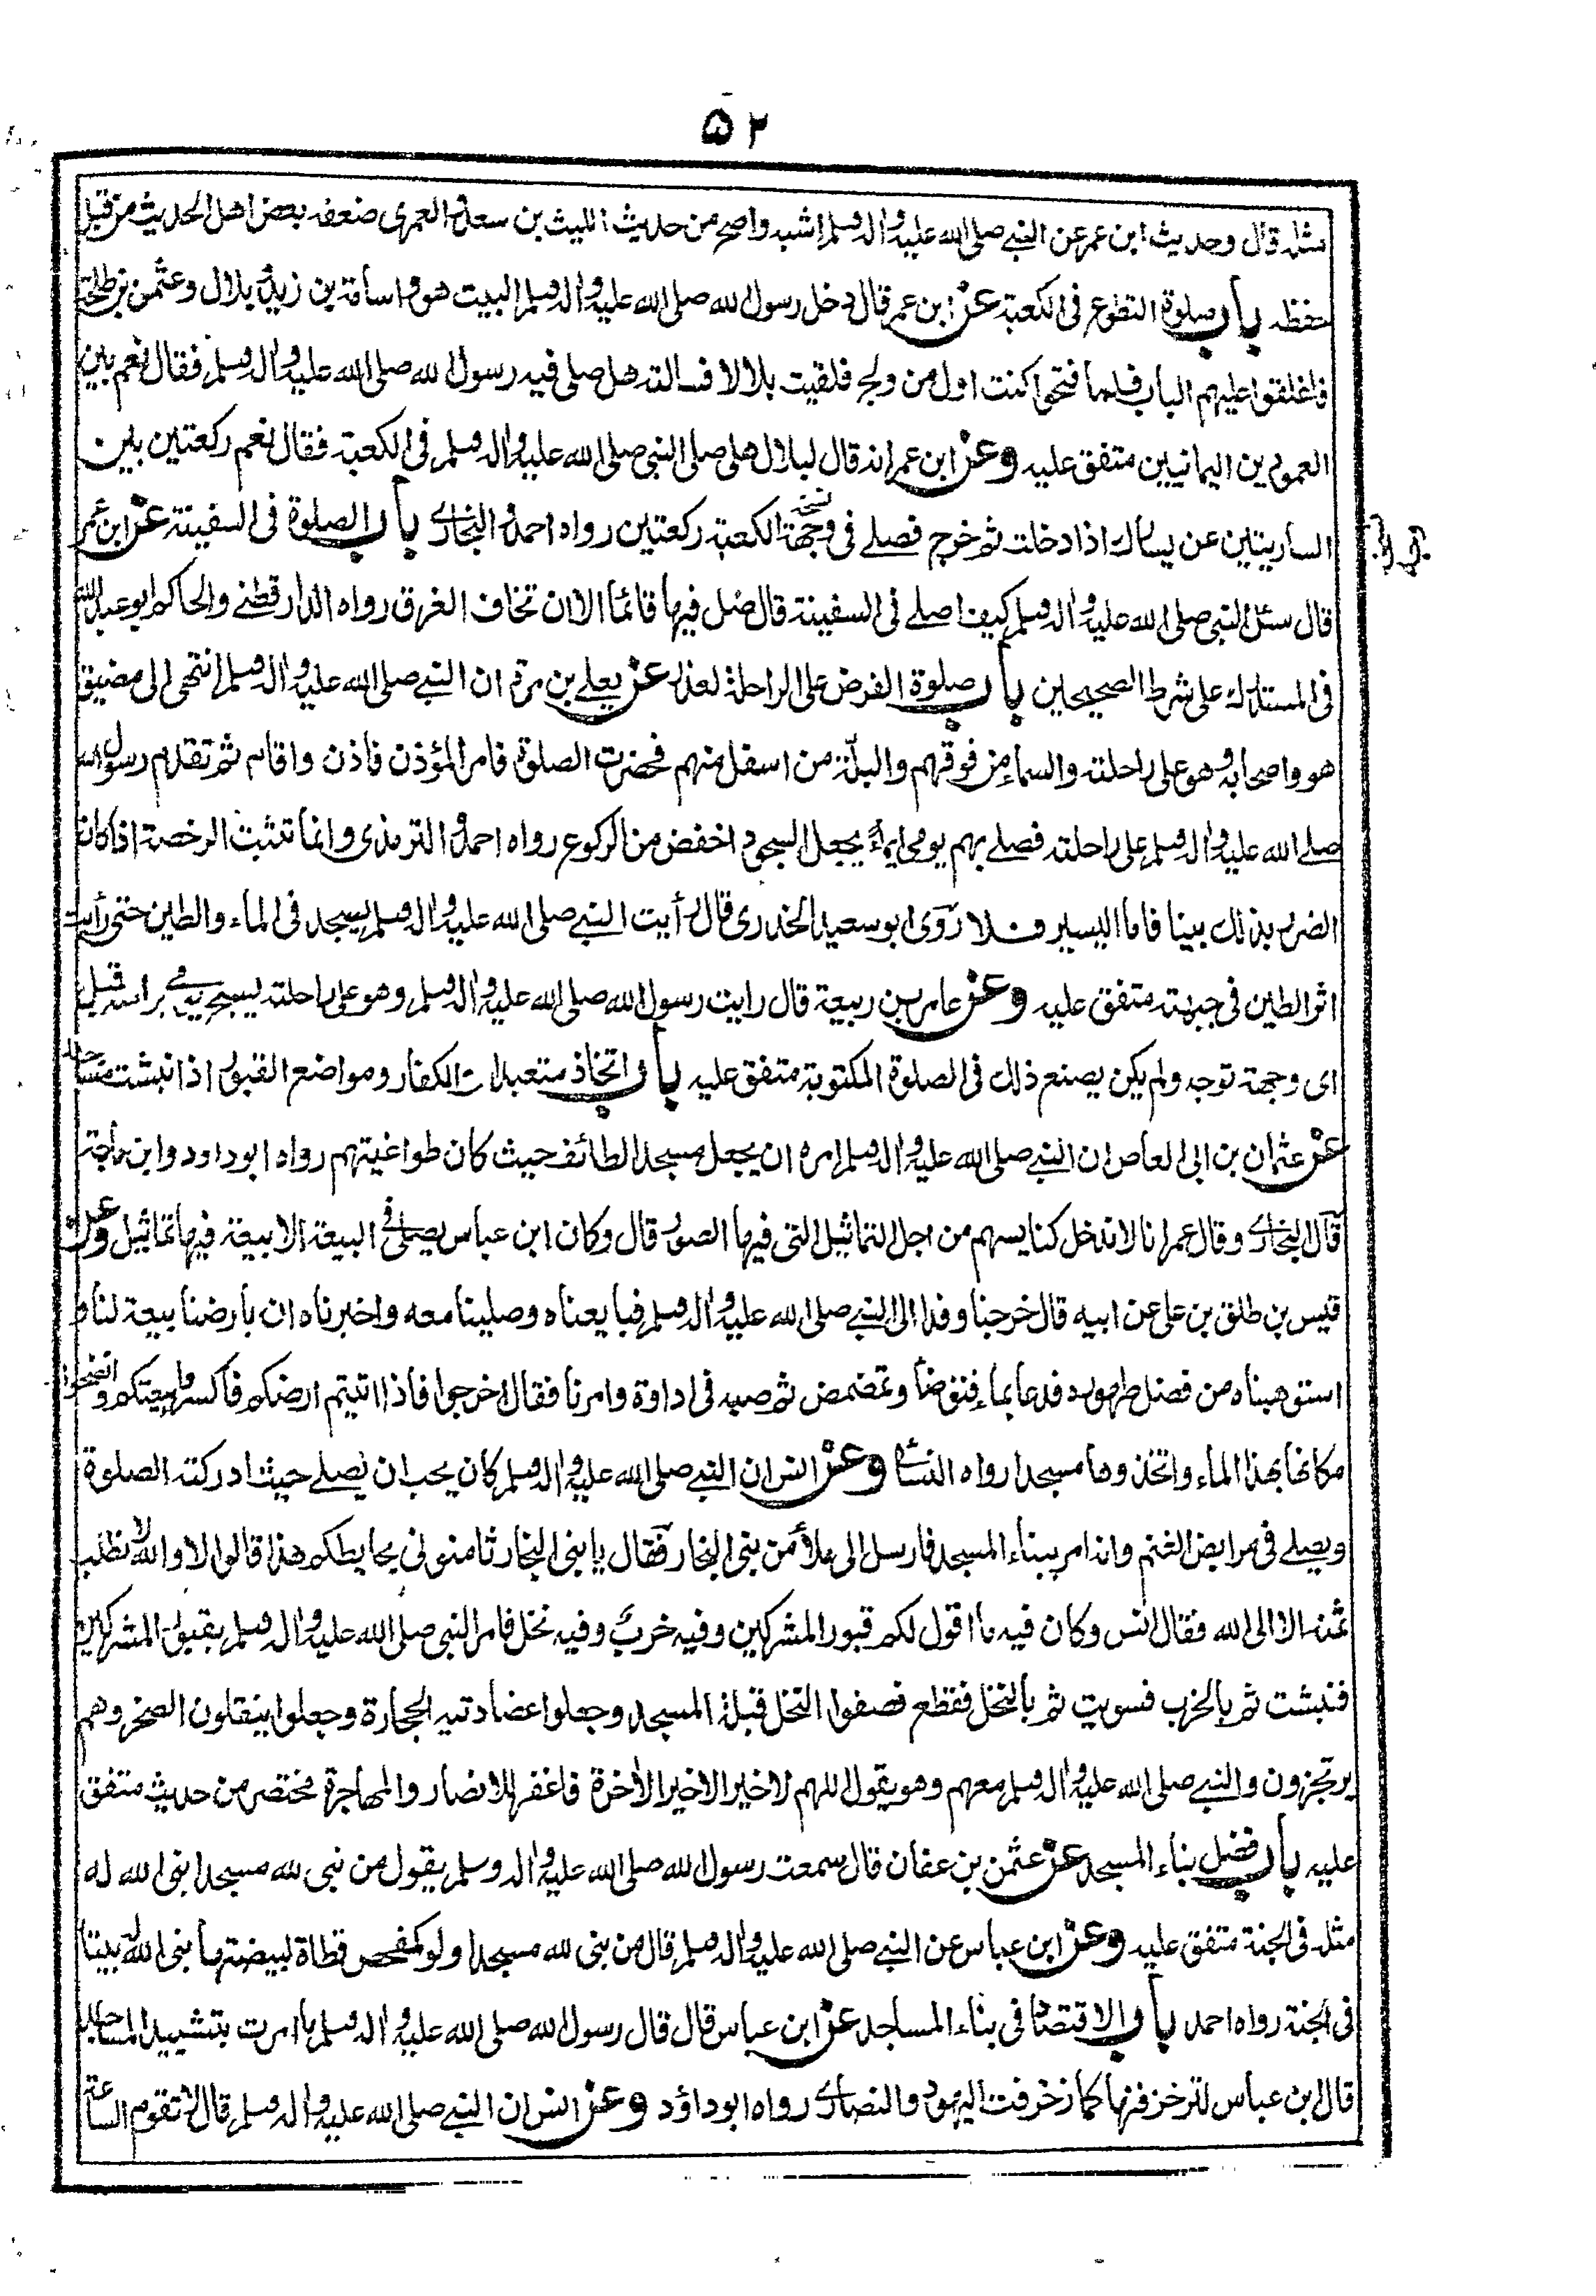 ۵۲
مثله قال وحديث ابن عمر عن النبي صلى الله عليه واله وسلم اشبه واصح من حديث الليث بن سعد والعمرى ضعفه بعض اهل الحديث من قبل
حفظه باب صلوة التطوع فى الكعبة عن ابن عمر قال دخل رسول الله صلى الله عليه واله وسلم البيت هو واسامة بن زيد وبلال وعثمن بن طلحة
فاغلقوا عليهم الباب فلما فتحوا كنت اول من ولج فلقيت بلالا فسالته هل صلى فيه رسول الله صلى الله عليه واله وسلم فقال نعم بين
العمودين اليمانيين متفق عليه وعن ابن عمر انه قال لبلال هل صلى النبي صلى الله عليه واله وسلم فى الكعبة فقال نعم ركعتين بين
الساريتين عن يسارك اذا دخلت ثم خرج فصلى فى وجهة الكعبة ركعتين رواه احمد والبخارى باب الصلوة فى السفينة عن ابن عمر
قال سئل النبي صلى الله عليه واله وسلم كيف اصلى فى السفينة قال صل فيها قائما الا ان تخاف الغرق رواه الدارقطنى والحاكم ابو عبد الله
فى المستدرك على شرط الصحيحين باب صلوة الفرض على الراحلة لعذر عن يعلى بن مرة ان النبي صلى الله عليه واله وسلم انتهى الى مضيق
هو واصحابه وهو على راحلته والسماء من فوقهم والبلة من اسفل منهم فحضرت الصلوة فامر المؤذن فاذن واقام ثم تقدم رسول الله
صلى الله عليه واله وسلم على راحلته فصلى بهم يومى ايماء يجعل السجود اخفض من الركوع رواه احمد والترمذى وانما تثبت الرخصة اذا كان
الضرر بذلك بينا فاما اليسير فلا روى ابو سعيد الخدرى قال رأيت النبي صلى الله عليه واله وسلم يسجد فى الماء والطين حتى رأيت
اثر الطين فى جبهته متفق عليه وعن عامر بن ربيعة قال رايت رسول الله صلى الله عليه واله وسلم وهو على راحلته يسبح يومى براسه قبل
اى وجهة توجه ولم يكن يصنع ذلك فى الصلوة المكتوبة متفق عليه باب اتخاذ متعبدات الكفار ومواضع القبور اذا نبشت مساجد
عن عثمان بن ابى العاص ان النبي صلى الله عليه واله وسلم امره ان يجعل مسجد الطائف حيث كان طواغيتهم رواه ابو داود وابن ماجة
قال البخارى وقال عمر انا لا ندخل كنايسهم من اجل التماثيل التى فيها الصور قال وكان ابن عباس يصلى فى البيعة الا بيعة فيها تماثيل وعن
قيس بن طلق بن على عن ابيه قال خرجنا وفدا الى النبي صلى الله عليه واله وسلم فبايعناه وصلينا معه واخبرناه ان بارضنا بيعة لنا و
استوهبناه من فضل طهوره فدعا بماء فتوضأ وتمضمض ثم صبه فى اداوة وامرنا فقال اخرجوا فاذا اتيتم ارضكم فاكسروا بيعتكم وانضحوا
مكانها بهذا الماء واتخذوها مسجدا رواه النسائى وعن انس ان النبي صلى الله عليه واله وسلم كان يحب ان يصلى حيث ادركته الصلوة
ويصلى فى مرابض الغنم وانه امر ببناء المسجد فارسل الى ملأ من بنى النجار فقال يا بنى النجار ثامنونى بحايطكم هذا قالوا لا والله لا نطلب
ثمنه الا الى الله فقال انس وكان فيه ما اقول لكم قبور المشركين وفيه خرب وفيه نخل فامر النبي صلى الله عليه واله وسلم بقبور المشركين
فنبشت ثم بالخرب فسويت ثم بالنخل فقطع فصفوا النخل قبلة المسجد وجعلوا عضادتيه الحجارة وجعلوا ينقلون الصخر وهم
يرتجزون والنبي صلى الله عليه واله وسلم معهم وهو يقول اللهم لا خير الا خير الأخرة فاغفر للانصار والمهاجرة مختصر من حديث متفق
عليه باب فضل بناء المسجد عن عثمن بن عفان قال سمعت رسول الله صلى الله عليه واله وسلم يقول من بنى لله مسجدا بنى الله له
مثله فى الجنة متفق عليه وعن ابن عباس عن النبي صلى الله عليه واله وسلم قال من بنى لله مسجدا ولو كمفحص قطاة لبيضتها بنى الله له بيتا
فى الجنة رواه احمد باب الاقتصاد فى بناء المساجد عن ابن عباس قال قال رسول الله صلى الله عليه واله وسلم ما امرت بتشييد المساجد
قال ابن عباس لتزخرفنها كما زخرفت اليهود والنصارى رواه ابو داؤد وعن انس ان النبي صلى الله عليه واله وسلم قال لا تقوم الساعة